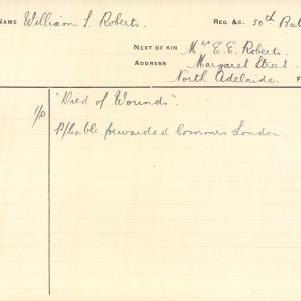 NAME William S. Roberts. REG &C. 50th Bat
NEXT OF KIN Mrs E. E. Roberts.
ADDRESS Margaret Street.
North Adelaide. F
1/0 "Died of Wounds".
P/Cable forwarded Commrs London.